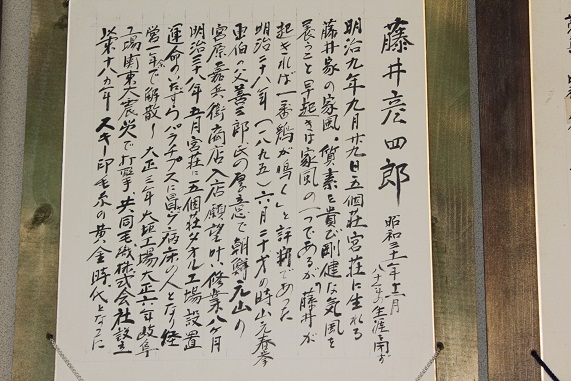 藤井彦四郎
昭和三十一年十二月
八十年の生涯を閉ず
明治九年九月廿九日五個荘宮荘に生れる
藤井家の家風・質素を貴び剛健な気風を
養うこと早起きは家風の一つであるが「藤井が
起きれば一番鶏が鳴く」と評判であった
明治二十八年(一八九五)六月二十才の時山元春挙
画伯の父善三郎氏の厚意で朝鮮元山の
宮原嘉兵衛商店入店願望叶い修業八ヶ月
明治三十八年五月宮荘に五個荘タオル工場設置
運命のいたずらパラチブスに罹り病床の人となり経
営一年で解散し大正三年大垣工場大正六年岐阜
工場関東大震災で打撃共同毛織株式会社設立
スキー印毛糸の黄金時代となった